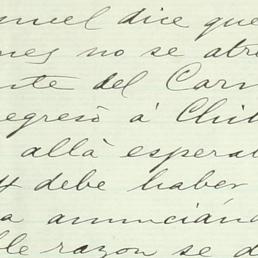 muel dice que
nes no se atre
nte del Carm
egresó á Chil
allá espera
debe haber
a anuncián
le razon se d